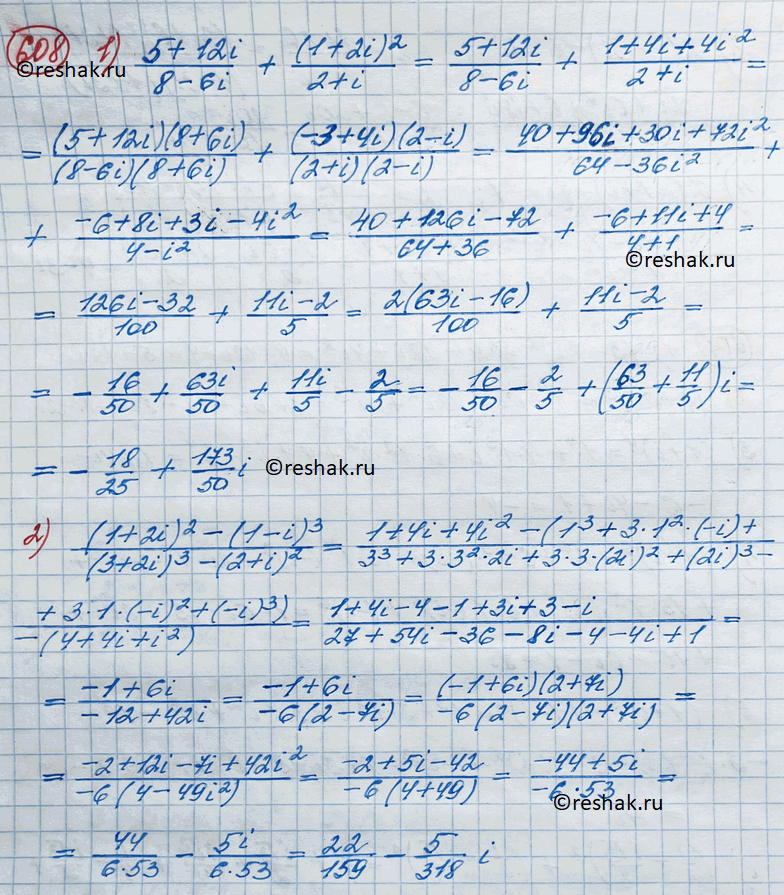 608 1) (5+12i)/(8-6i) + (1+2i)²/(2+i) = (5+12i)/(8-6i) + (1+4i+4i²)/(2+i) =
©reshak.ru ©reshak.ru
= (5+12i)(8+6i)/(8-6i)(8+6i) + (-3+4i)(2-i)/(2+i)(2-i) = (40+96i+30i+72i²)/(64-36i²) +
+ (-6+8i+3i-4i²)/(4-i²) = (40+126i-72)/(64+36) + (-6+11i+4)/(4+1) =
©reshak.ru
= (126i-32)/100 + (11i-2)/5 = 2(63i-16)/100 + (11i-2)/5 =
= -16/50 + 63i/50 + 11i/5 - 2/5 = -16/50 - 2/5 + (63/50 + 11/5)i =
= -18/25 + 173/50 i ©reshak.ru
2) ((1+2i)²-(1-i)³)/((3+2i)³-(2+i)²) = (1+4i+4i²-(1³+3·1²·(-i)+)/(3³+3·3²·2i+3·3·(2i)²+(2i)³-)
(+3·1·(-i)²+(-i)³))/(-(4+4i+i²)) = (1+4i-4-1+3i+3-i)/(27+54i-36-8i-4-4i+1) =
= (-1+6i)/(-12+42i) = (-1+6i)/(-6(2-7i)) = (-1+6i)(2+7i)/(-6(2-7i)(2+7i)) =
= (-2+12i-7i+42i²)/(-6(4-49i²)) = (-2+5i-42)/(-6(4+49)) = (-44+5i)/(-6·53) =
©reshak.ru
= 44/(6·53) - 5i/(6·53) = 22/159 - 5/318 i